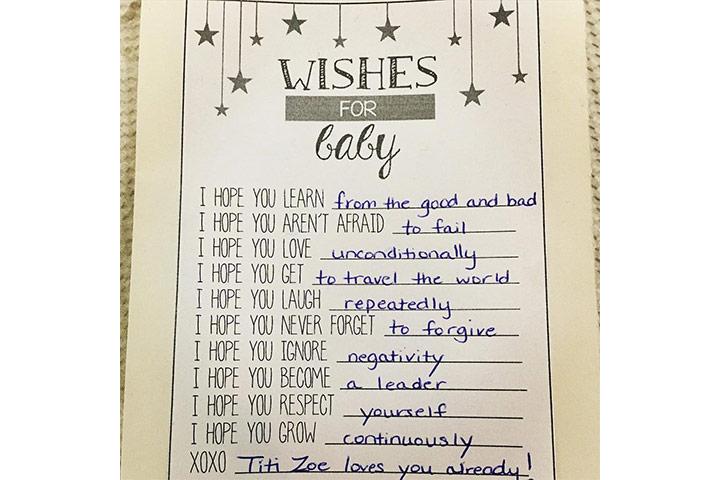 WISHES
FOR
baby
I HOPE YOU LEARN from the good and bad
I HOPE YOU AREN'T AFRAID to fail
I HOPE YOU LOVE unconditionally
I HOPE YOU GET to travel the world
I HOPE YOU LAUGH repeatedly
I HOPE YOU NEVER FORGET to forgive
I HOPE YOU IGNORE negativity
I HOPE YOU BECOME a leader
I HOPE YOU RESPECT yourself
I HOPE YOU GROW continuously
XOXO Titi Zoe loves you already!